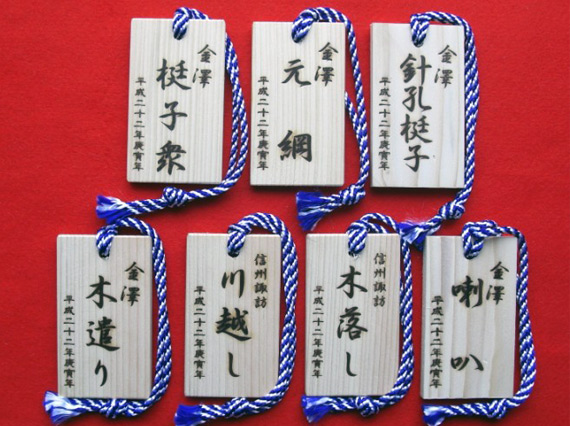 金澤
梃子衆
平成二十二年庚寅年
金澤
元綱
平成二十二年庚寅年
金澤
針孔梃子
平成二十二年庚寅年
金澤
木遣り
平成二十二年庚寅年
信州諏訪
川越し
平成二十二年庚寅年
信州諏訪
木落し
平成二十二年庚寅年
金澤
喇叭
平成二十二年庚寅年